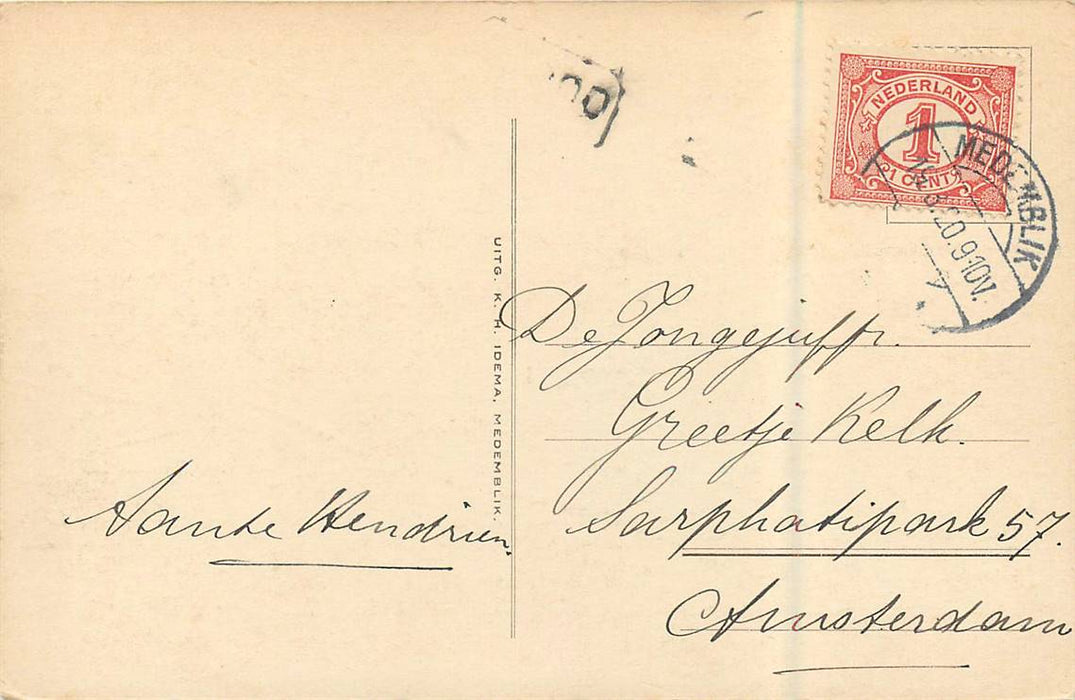 NEDERLAND
1
1 CENT
MEDEMBLIK
20.9-10V.
UITG. K. H. IDEMA, MEDEMBLIK.
De Jongejuffr.
Greetje Kelk.
Sarphatipark 57.
Amsterdam
Tante Hendrien.